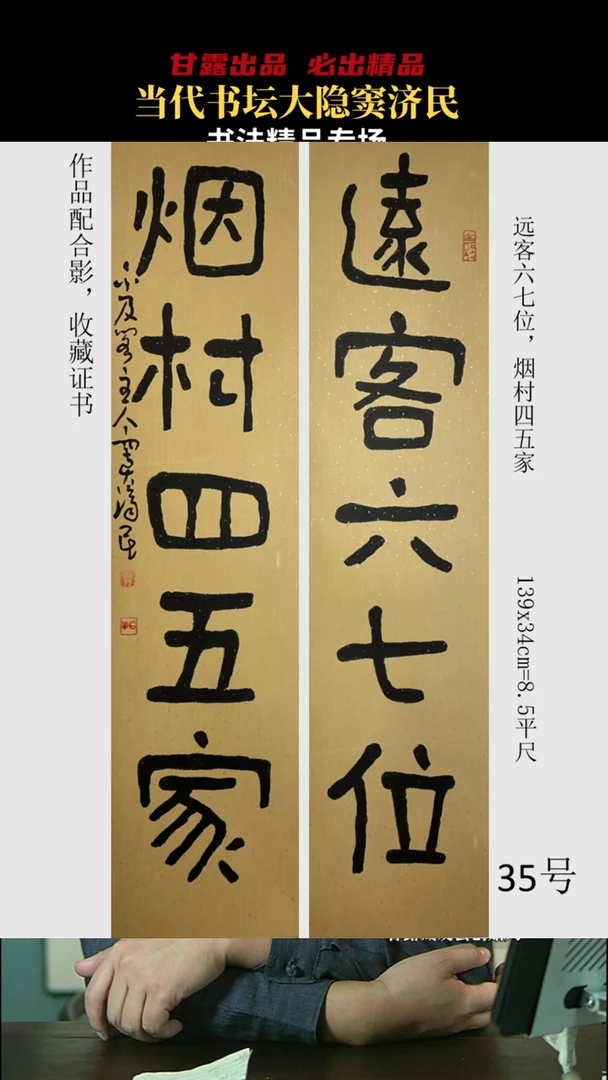 甘露出品 必出精品
当代书坛大隐窦济民
书法精品专场
远客六七位，烟村四五家
139x34cm=8.5平尺
35号
遠客六七位
烟村四五家
作品配合影，收藏证书